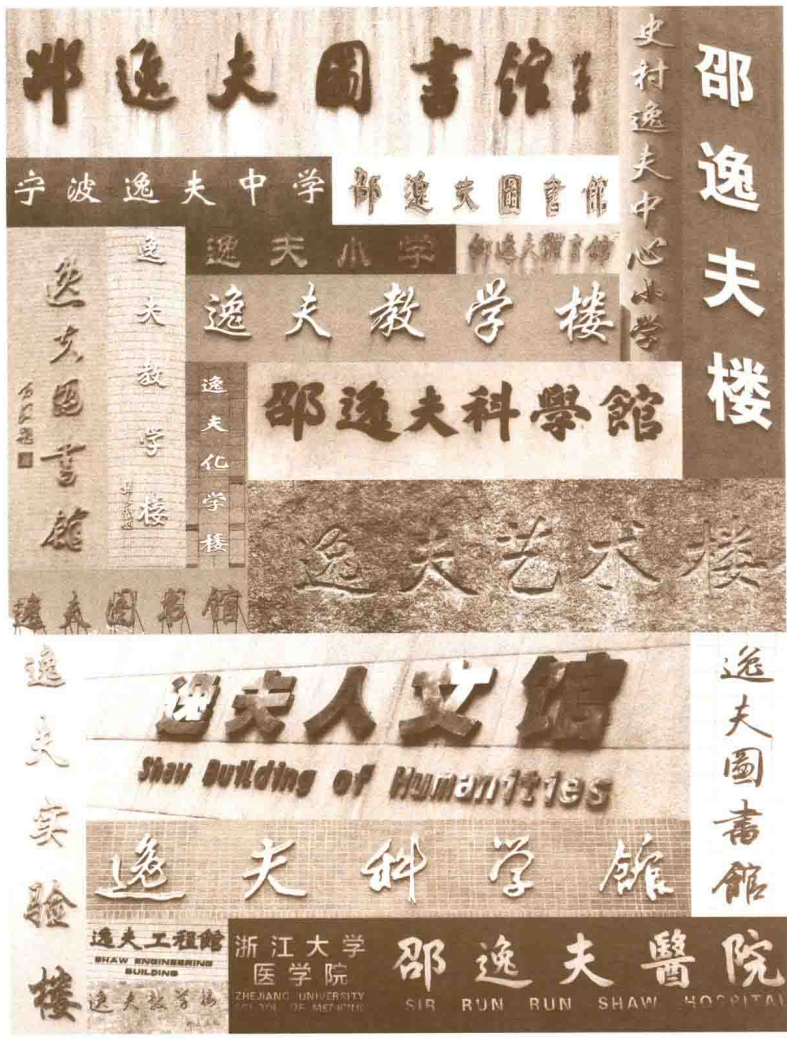 邵逸夫圖書館
史村逸夫中心小学
邵逸夫楼
宁波逸夫中学
邵逸夫圖書館
逸夫小学
邵逸夫體育館
逸夫图书馆
逸夫教学楼
逸夫教学楼
逸夫化学楼
邵逸夫科學館
逸夫艺术楼
逸夫图书馆
逸夫实验楼
逸夫人文馆
Shaw Building of Humanities
逸夫圖書館
逸夫科学馆
逸夫工程館
SHAW ENGINEERING
BUILDING
逸夫教学楼
浙江大学
医学院
ZHEJIANG UNIVERSITY
SCHOOL OF MEDICINE
邵逸夫醫院
SIR RUN RUN SHAW HOSPITAL